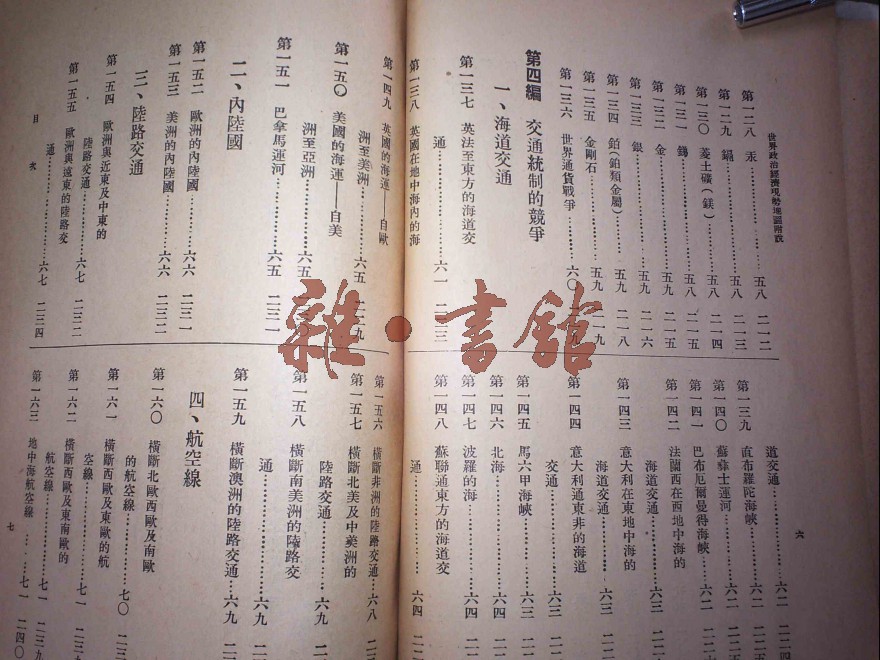 世界政治經濟現勢地圖附說
第一二八　汞……五八　二一二
第一二九　鎘……五八　二一三
第一三〇　菱土礦（鎂）……五八　二一四
第一三一　銻……五八　二一五
第一三二　金……五九　二一五
第一三三　銀……五九　二一六
第一三四　鉑（鉑類金屬）……五九　二一八
第一三五　金剛石……五九　二一九
第一三六　世界通貨戰爭……六〇
第四編　交通統制的競爭
一、海道交通
第一三七　英法至東方的海道交
通……六一
第一三八　英國在地中海內的海
道交通……六二
第一三九　直布羅陀海峽……六二
第一四〇　蘇彝士運河……六二
第一四一　巴布厄爾曼得海峽……六二
第一四二　法蘭西在西地中海的
海道交通……六三
第一四三　意大利在東地中海的
海道交通……六三
第一四四　意大利通東非的海道
交通……六三
第一四五　馬六甲海峽……六三
第一四六　北海……六四
第一四七　波羅的海……六四
第一四八　蘇聯通東方的海道交
通……六四
六
第一四九　英國的海運——自歐
洲至美洲……六五　二二九
第一五〇　美國的海運——自美
洲至亞洲……六五
第一五一　巴拿馬運河……六五　二三一
二、內陸國
第一五二　歐洲的內陸國……六六　二三一
第一五三　美洲的內陸國……六六　二三二
三、陸路交通
第一五四　歐洲與近東及中東的
陸路交通……六七　二三二
第一五五　歐洲與遠東的陸路交
通……六七　二三四
目次
第一五六　橫斷非洲的陸路交通……六八
第一五七　橫斷北美及中美洲的
陸路交通……六九
第一五八　橫斷南美洲的陸路交
通……六九
第一五九　橫斷澳洲的陸路交通……六九
四、航空線
第一六〇　橫斷北歐西歐及南歐
的航空線……七〇
第一六一　橫斷西歐及東歐的航
空線……七一
第一六二　橫斷西歐及東南歐的
航空線……七一　二三九
第一六三　地中海航空線……七一　二四〇
七
雜·書館